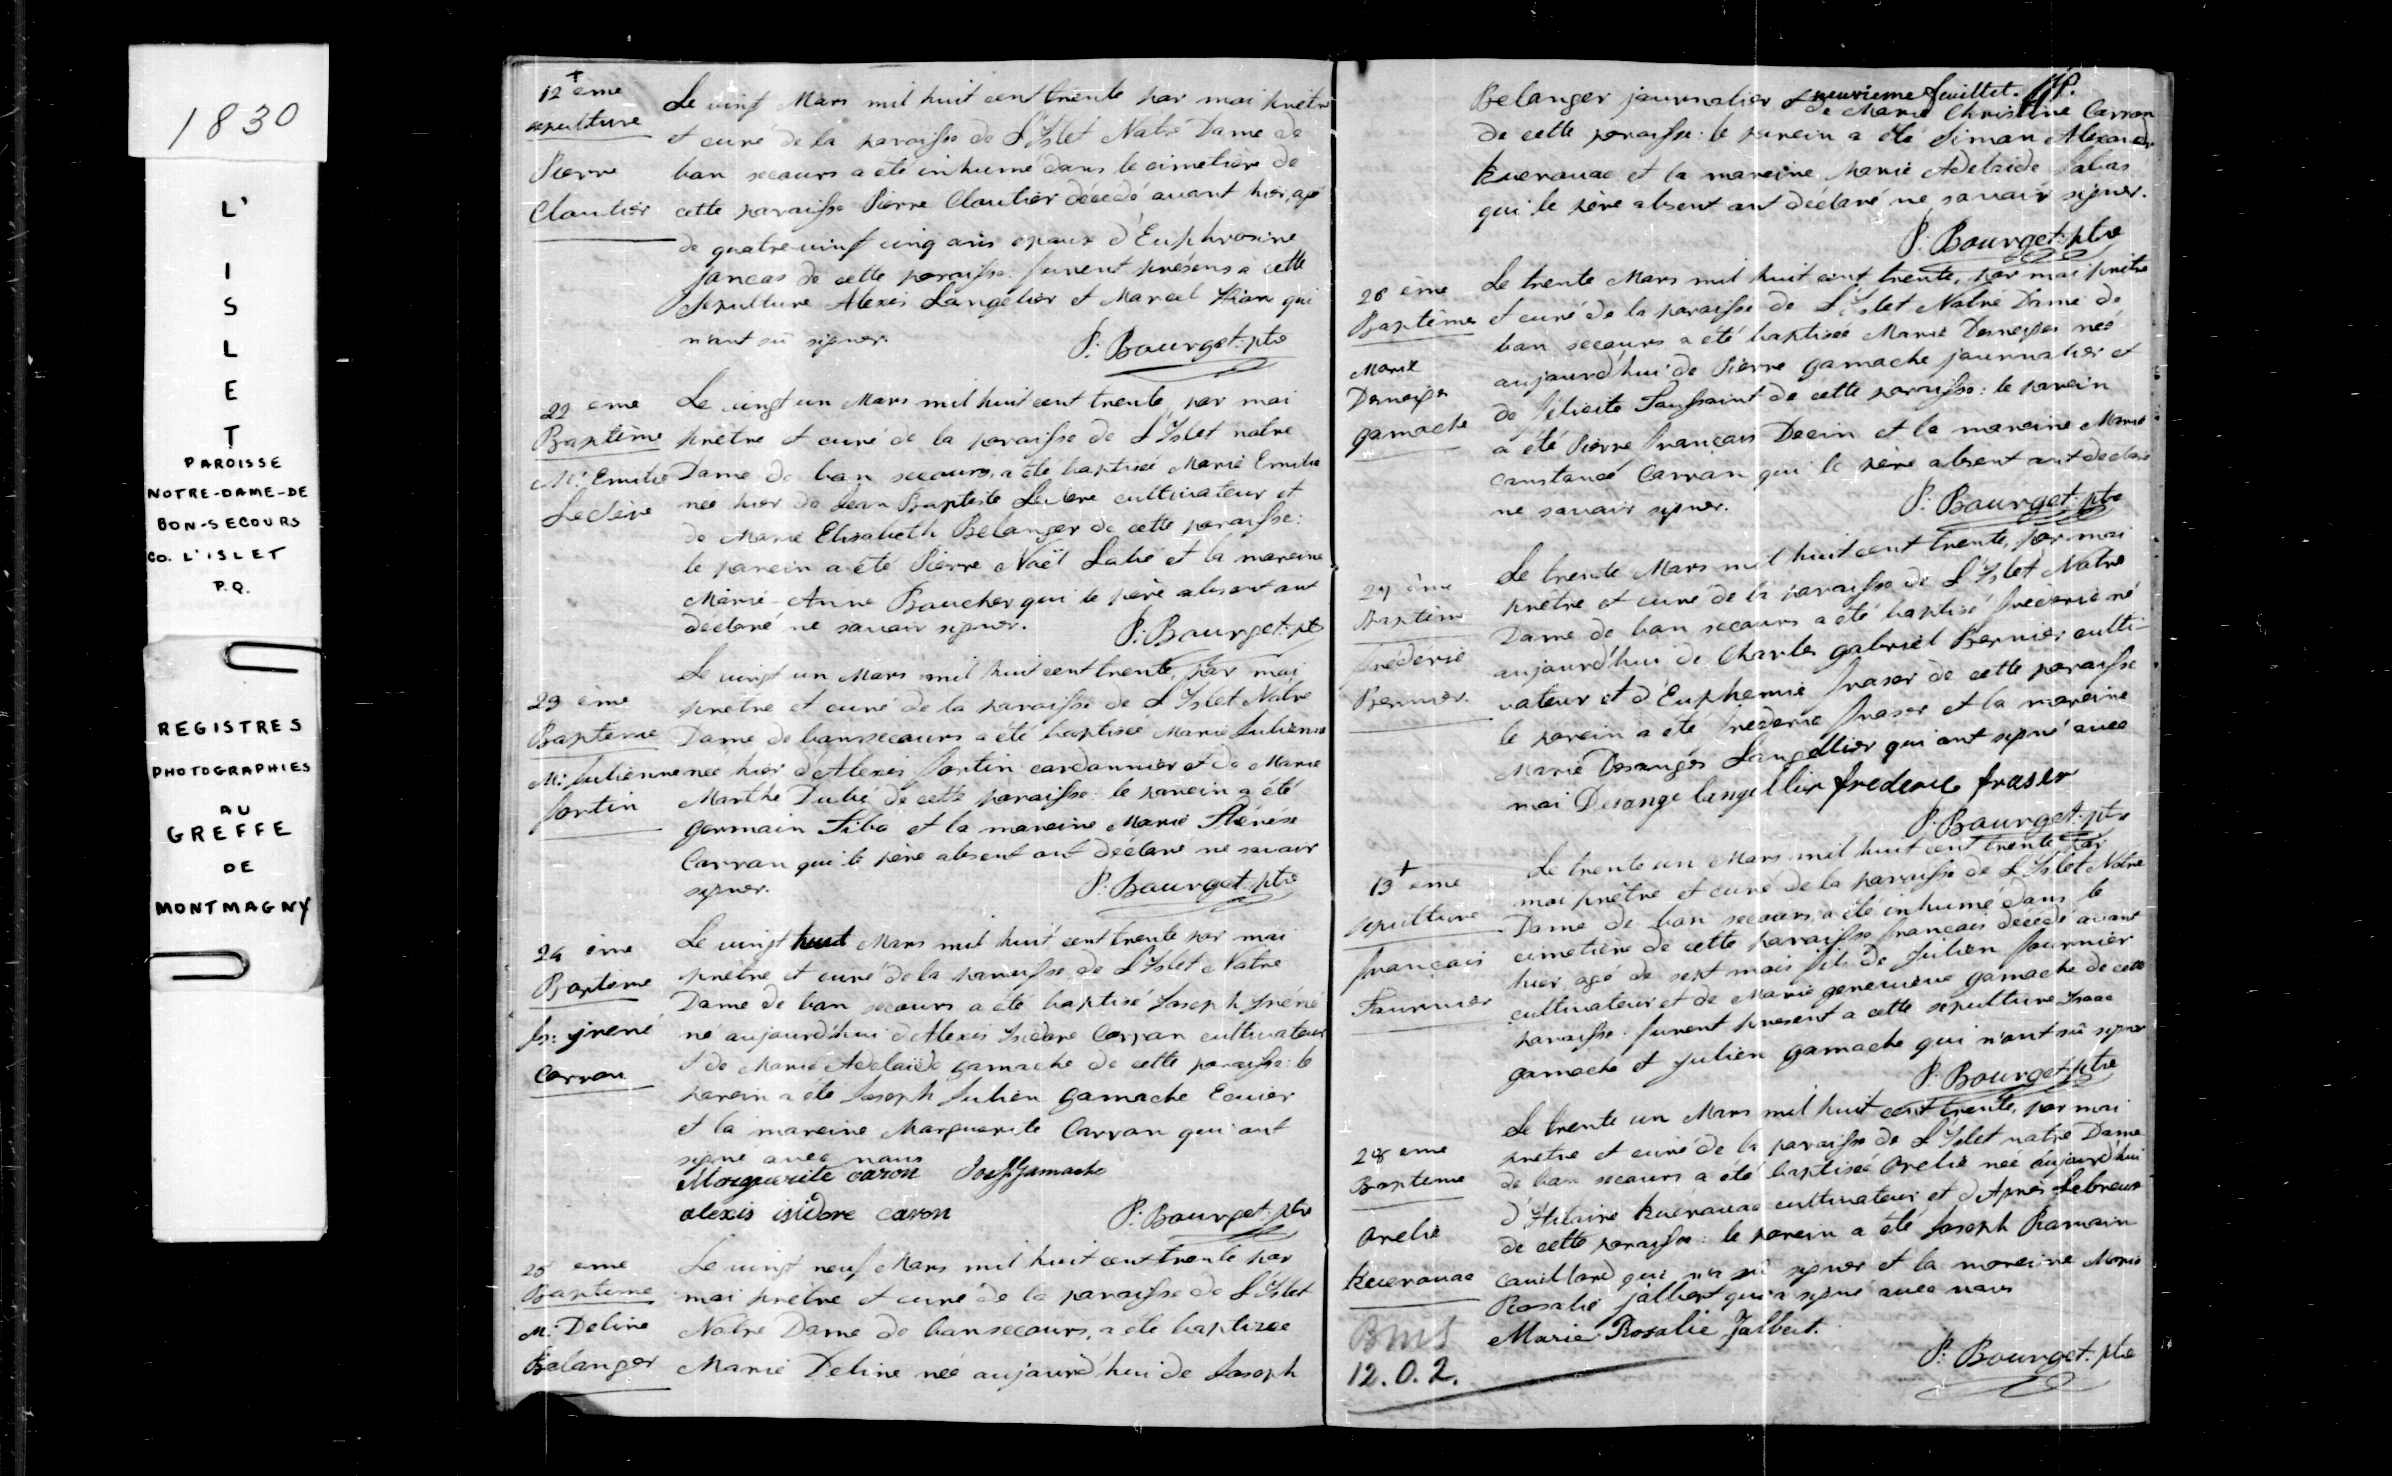 1830
L'
I
S
L
E
T
PAROISSE
NOTRE-DAME-DE
BON-SECOURS
CO. L'ISLET
P.Q.
REGISTRES
PHOTOGRAPHIES
AU
GREFFE
DE
MONTMAGNY
12 eme
sepulture
Pierre
Cloutier
Le vingt Mars mil huit cent trente par moi prêtre
et curé de la paroisse de L'Islet Notre Dame de
bon secours a été inhumé dans le cimetière de
cette paroisse Pierre Cloutier décédé avant hier, agé
de quatre-vingt cinq ans epoux d'Euphrosine
Jancas de cette paroisse. furent présens a cette
Sepulture Alexis Langelier et Marcel qui
n'ont sû signer.
P: Bourget. ptre
22 eme
Baptème
M: Emilie
Leclere
Le vingt un Mars mil huit cent trente, par moi
prêtre et curé de la paroisse de L'Islet notre
Dame de bon secours, a été baptisée Marie Emilie
née hier de Jean Baptiste Leclere cultivateur et
de Marie Elisabeth Belanger de cette paroisse:
le parein a été Pierre Noël Labé et la mareine
Marie-Anne Boucher qui le père absent ont
declaré ne savoir signer.
P: Bourget. pt
23 eme
Baptème
M: Julienne
fortin
Le vingt un Mars mil huit cent trente, par moi
prêtre et curé de la paroisse de L'Islet Notre
Dame de bonsecours a été baptisée Marie Julienne
née hier d'Alexis fortin cordonnier et de Marie
Marthe Dubé de cette paroisse: le parein a été
germain Tibo et la mareine Marie Thérèse
Carron qui le père absent ont déclaré ne savoir
signer.
P: Bourget. ptre
24 eme
Baptème
Js: yrené
Carron
Le vingt huit Mars mil huit cent trente par moi
prêtre et curé de la paroisse de L'Islet Notre
Dame de bon secours a été baptisé Joseph yréné
né aujourd'hui d'Alexis Isidore Carron cultivateur
et de Marie Adelaïde gamache de cette paroisse: le
parein a été Joseph Julien gamache Ecuier
et la mareine Marguerite Carron qui ont
signé avec nous
Marguerite caron Josh Gamache
alexis isidore caron
P: Bourget. ptre
25 eme
Baptème
M: Deline
Belanger
Le vingt neuf Mars mil huit cent trente par
moi prêtre et curé de la paroisse de L'Islet
Notre Dame de bonsecours, a été baptizée
Marie Deline née aujourd'hui de Joseph
neuvieme feuillet.
Belanger journalier & de Marie Christine Carron
de cette paroisse: le parein a été Simon Alexandre
kuerouac et la mareine Marie Adelaïde
qui le père absent ont déclaré ne savoir signer.
P: Bourget. ptre
26 ème
Baptème
Marie
Desneiges
gamache
Le trente Mars mil huit cent trente, par moi prêtre
et curé de la paroisse de L'Islet Notre Dame de
bon secours a été baptisée Marie Desneiges née
aujourd'hui de Pierre gamache journalier et
de felicité Toussaint de cette paroisse: le parein
a été Pierre françois et la mareine Marie
constance Carron qui le père absent ont declaré
ne savoir signer.
P: Bourget. ptre
27 ème
Baptème
fréderic
Bernier.
Le trente Mars mil huit cent trente, par moi
prêtre et curé de la paroisse de L'Islet Notre
Dame de bon secours a été baptisé frederic né
aujourd'hui de Charles gabriel Bernier culti-
vateur et d'Euphemie fraser de cette paroisse
le parein a été fréderic fraser et la mareine
Marie Desanges Langellier qui ont signé avec
moi Desange langellier frederic fraser
P: Bourget. ptre
13 eme
sepulture
françois
fournier
Le trente un Mars mil huit cent trente par
moi prêtre et curé de la paroisse de L'Islet Notre
Dame de bon secours, a été inhumé dans le
cimetière de cette paroisse françois décédé avant
hier, agé de sept mois fils de Julien fournier
cultivateur et de Marie genevieve gamache de cette
paroisse. furent present a cette sepulture Isaac
gamache et Julien gamache qui n'ont sû signer
P: Bourget. ptre
28 eme
Baptème
Orelie
kuerouac
Le trente un Mars mil huit cent trente, par moi
prêtre et curé de la paroisse de L'Islet notre Dame
de bon secours a été baptisée Orelie née aujourd'hui
d'Hilaire kuerouac cultivateur et d'Agnès Lebreux
de cette paroisse: le parein a été Joseph Romain
Couillard qui n'a sû signer et la mareine Marie
Rosalie Jalbert qui a signé avec nous
Marie Rosalie Jalbert.
P: Bourget. ptre
BMS
12.0.2.